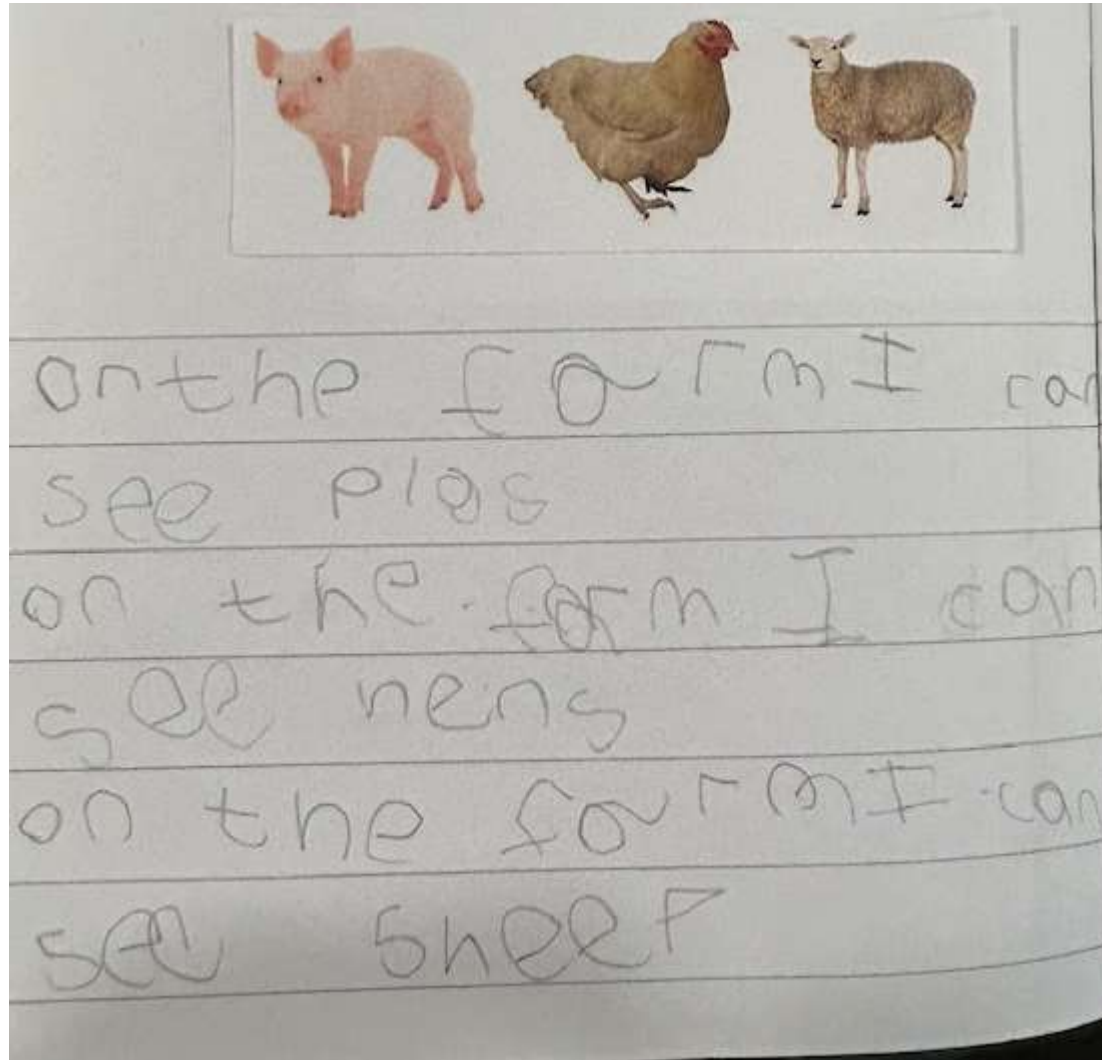 on the farm I can
see pigs
on the farm I can
see hens
on the farm I can
see sheep